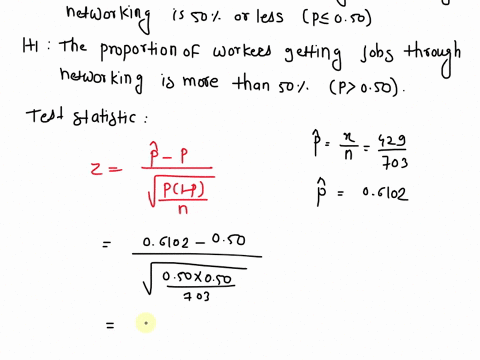 networking is 50% or less (P≤ 0.50)
H1 : The proportion of workees getting jobs through
networking is more than 50% (P> 0.50).
Test statistic :
Z = p̂ - P / √(P(1-P)/n)
p̂ = x/n = 429/703
p̂ = 0.6102
= 0.6102 - 0.50 / √(0.50 x 0.50/703)
=